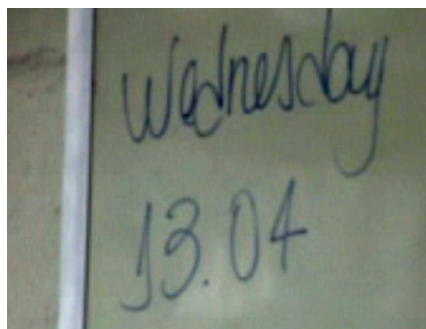 Wednesday
13.04